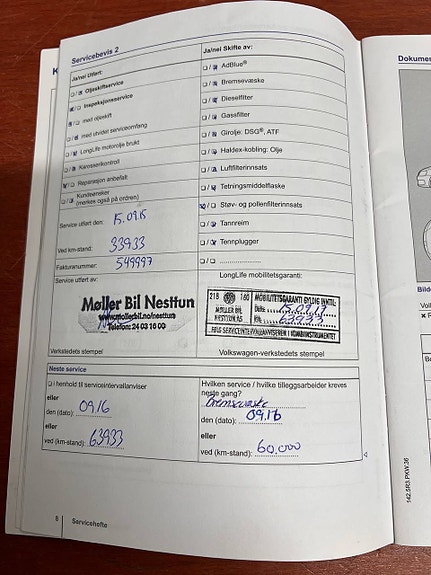 Servicebevis 2
Ja/nei Utført:
Oljeskiftservice
Inspeksjonsservice
med oljeskift
med utvidet serviceomfang
LongLife motorolje brukt
Karosserikontroll
Reparasjon anbefalt
Kundeønsker
(merkes også på ordren)
Service utført den: 15.09.15
Ved km-stand: 33933
Fakturanummer: 549997
Service utført av:
Møller Bil Nesttun
www.mollerbil.no/nesttun
Telefon: 24 03 16 00
Verkstedets stempel
Ja/nei Skifte av:
AdBlue®
Bremsevæske
Dieselfilter
Gassfilter
Girolje: DSG®, ATF
Haldex-kobling: Olje
Luftfilterinnsats
Tetningsmiddelflaske
Støv- og pollenfilterinnsats
Tannreim
Tennplugger
LongLife mobilitetsgaranti:
218 160 MOBILITETSGARANTI GYLDIG INNTIL:
MØLLER BIL
NESTTUN AS
Dato: 15.09.17
KM: 63933
FØLG SERVICEINTERVALLANVISEREN I KOMBIINSTRUMENTET
Volkswagen-verkstedets stempel
Neste service
i henhold til serviceintervallanviser
eller
den (dato): 09.16
eller
ved (km-stand): 63933
Hvilken service / hvilke tilleggsarbeider kreves
neste gang?
Bremsevæske
den (dato): 09.16
eller
ved (km-stand): 60.000
6 Servicehefte
142.5R3.PKW.36
Dokumen